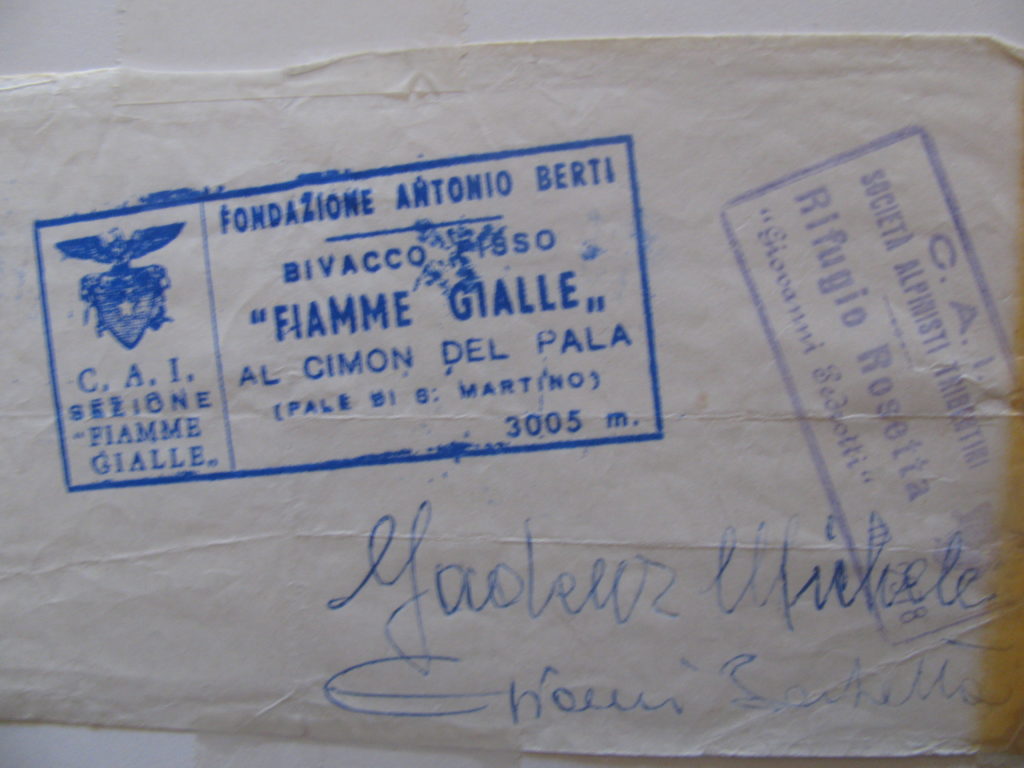 FONDAZIONE ANTONIO BERTI
BIVACCO FISSO
"FIAMME GIALLE„
AL CIMON DEL PALA
(PALE DI S. MARTINO)
3005 m.
C. A. I.
SEZIONE
"FIAMME
GIALLE„
C. A. I.
SOCIETÀ ALPINISTI TRIDENTINI
Rifugio Rosetta
"Giovanni
Michele
Gianni